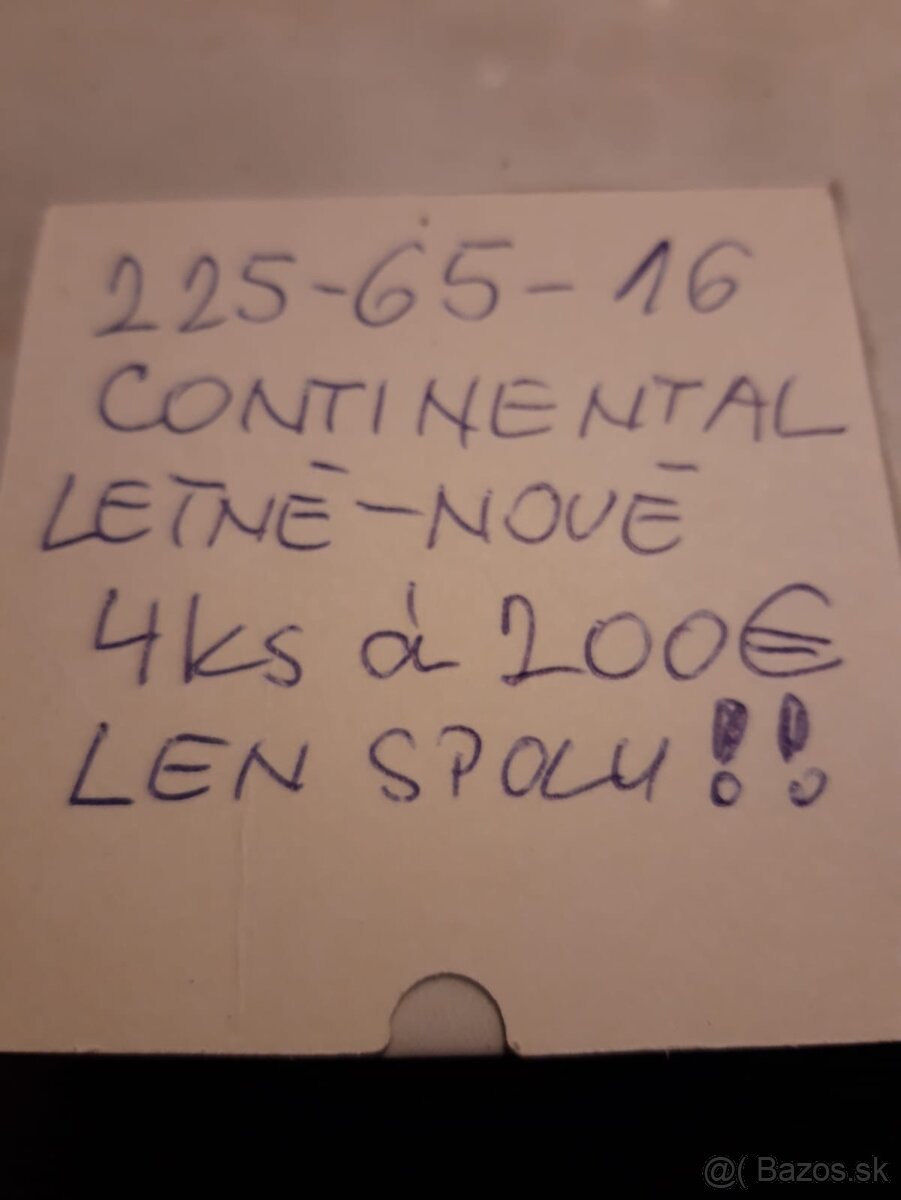 225-65-16
CONTINENTAL
LETNÉ-NOVÉ
4ks á 200€
LEN SPOLU!!
@( Bazos.sk